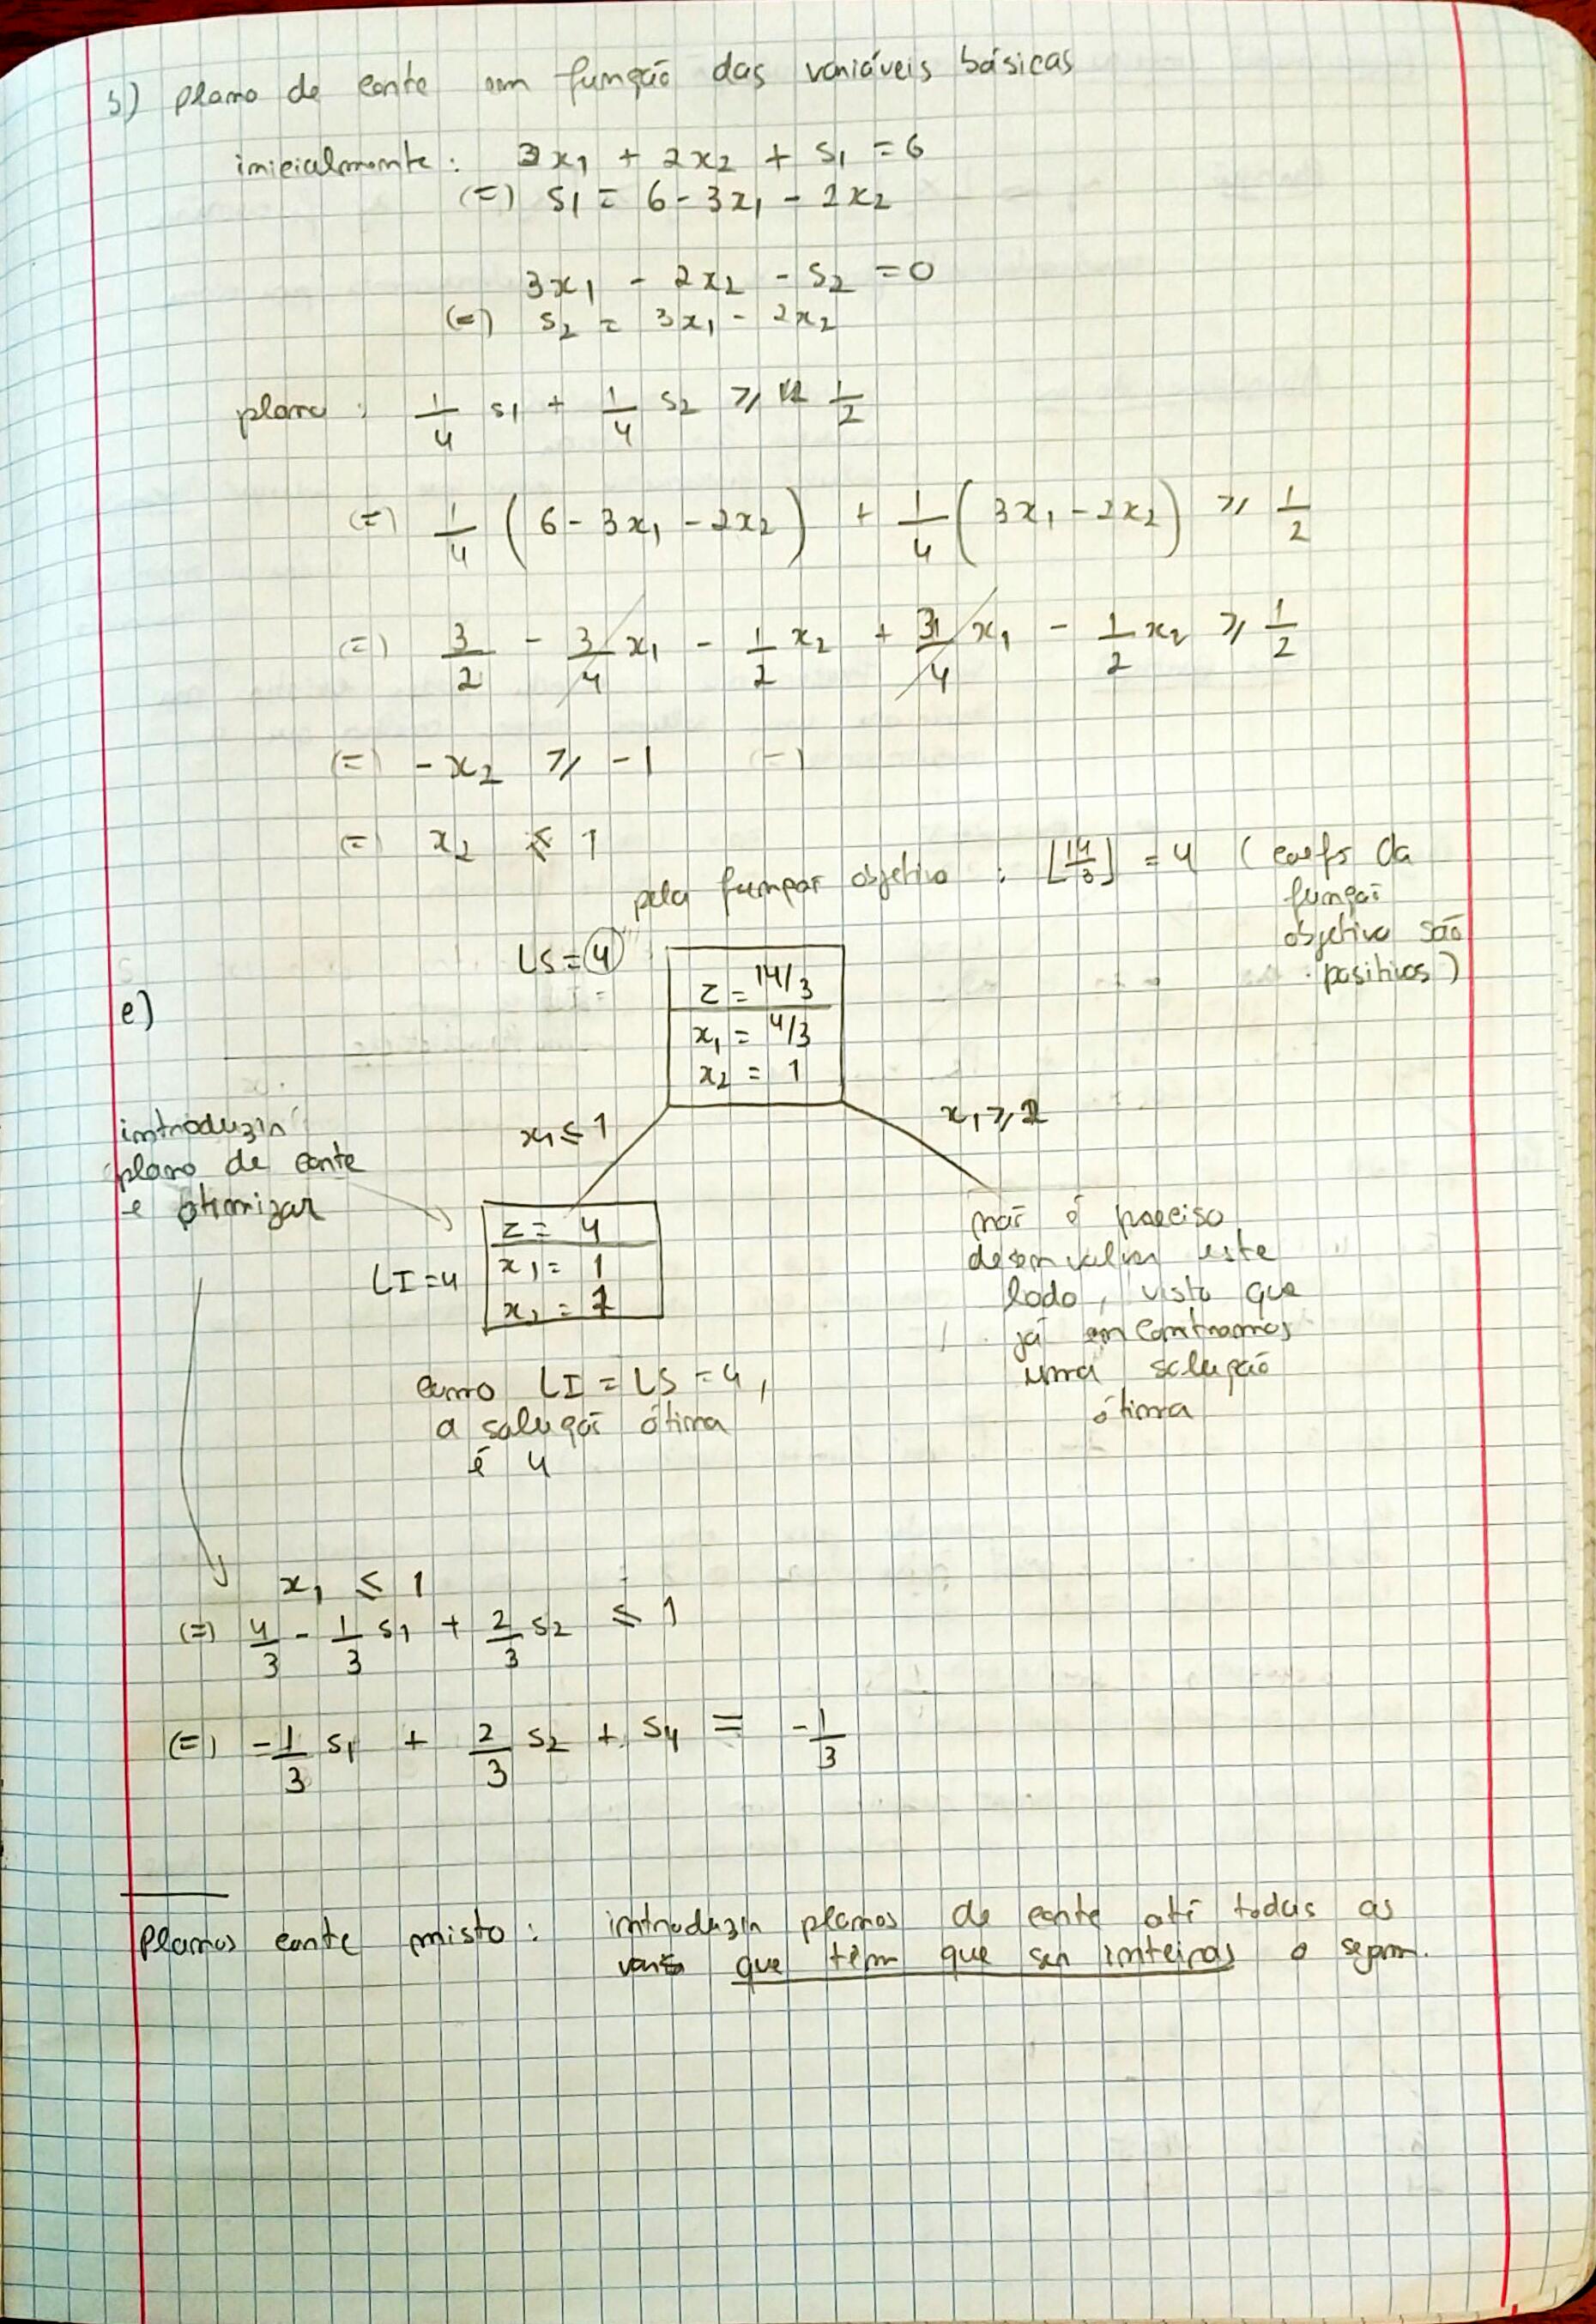 b) plano de corte em função das variáveis básicas
inicialmente: 3x₁ + 2x₂ + s₁ = 6
(=) s₁ = 6 - 3x₁ - 2x₂
3x₁ - 2x₂ - s₂ = 0
(=) s₂ = 3x₁ - 2x₂
plano: 1/4 s₁ + 1/4 s₂ ≥ 1/2
(=) 1/4 (6 - 3x₁ - 2x₂) + 1/4 (3x₁ - 2x₂) ≥ 1/2
(=) 3/2 - 3/4 x₁ - 1/2 x₂ + 3/4 x₁ - 1/2 x₂ ≥ 1/2
(=) -x₂ ≥ -1
(=) x₂ ≤ 1
pela função objetivo: ⌊14/3⌋ = 4 (coefs da
função
objetivo são
positivos)
LS = 4
z = 14/3
x₁ = 4/3
x₂ = 1
c)
x₁ ≤ 1
x₁ ≥ 2
introduzir
plano de corte
e otimizar
z = 4
x₁ = 1
x₂ = 1
LI = 4
não é preciso
desenvolver este
lado, visto que
já encontramos
uma solução
ótima
como LI = LS = 4,
a solução ótima
é 4
x₁ ≤ 1
(=) 4/3 - 1/3 s₁ + 2/3 s₂ ≤ 1
(=) -1/3 s₁ + 2/3 s₂ + s₄ = -1/3
Planos corte misto: introduzir planos de corte até todas as
que têm que ser inteiras o sejam.